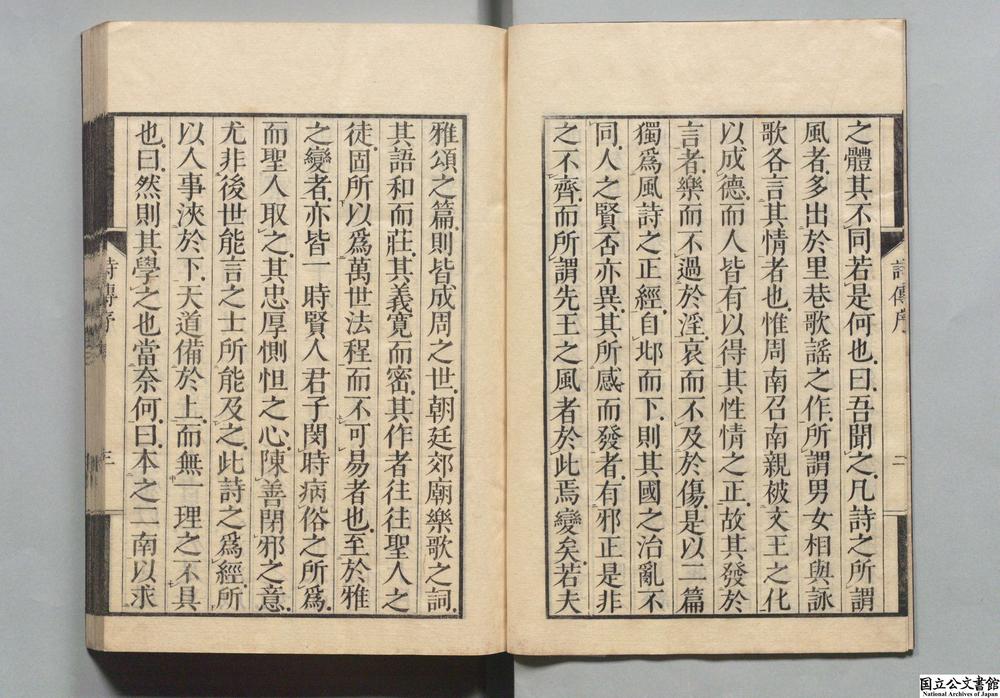 之體其不同若是何也曰吾聞之凡詩之所謂
風者多出於里巷歌謠之作所謂男女相與詠
歌各言其情者也惟周南召南親被文王之化
以成德而人皆有以得其性情之正故其發於
言者樂而不過於淫哀而不及於傷是以二篇
獨爲風詩之正經自邶而下則其國之治亂不
同人之賢否亦異其所感而發者有邪正是非
之不齊而所謂先王之風者於此焉變矣若夫
雅頌之篇則皆成周之世朝廷郊廟樂歌之詞
其語和而莊其義寬而密其作者往往聖人之
徒固所以爲萬世法程而不可易者也至於雅
之變者亦皆一時賢人君子閔時病俗之所爲
而聖人取之其忠厚惻怛之心陳善閉邪之意
尤非後世能言之士所能及之此詩之爲經所
以人事浹於下天道備於上而無一理之不具
也曰然則其學之也當奈何曰本之二南以求
詩傳序
二
詩傳序
三
国立公文書館
National Archives of Japan